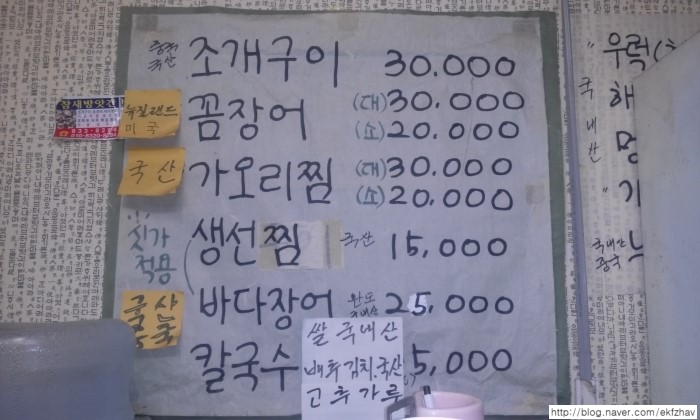 중국
국산
조개구이 30.000
참새방앗간
뉴질랜드
미국
꼼장어 (대) 30.000
(소) 20.000
국산
가오리찜 (대) 30.000
(소) 20.000
싯가
적용
생선찜 국산 15,000
바다장어 완도 25,000
칼국수 5,000
쌀 국내산
배추김치.국산
고추가루
우럭
국내산
해
멍
기
국내산
중국
http://blog.naver.com/ekfzhav